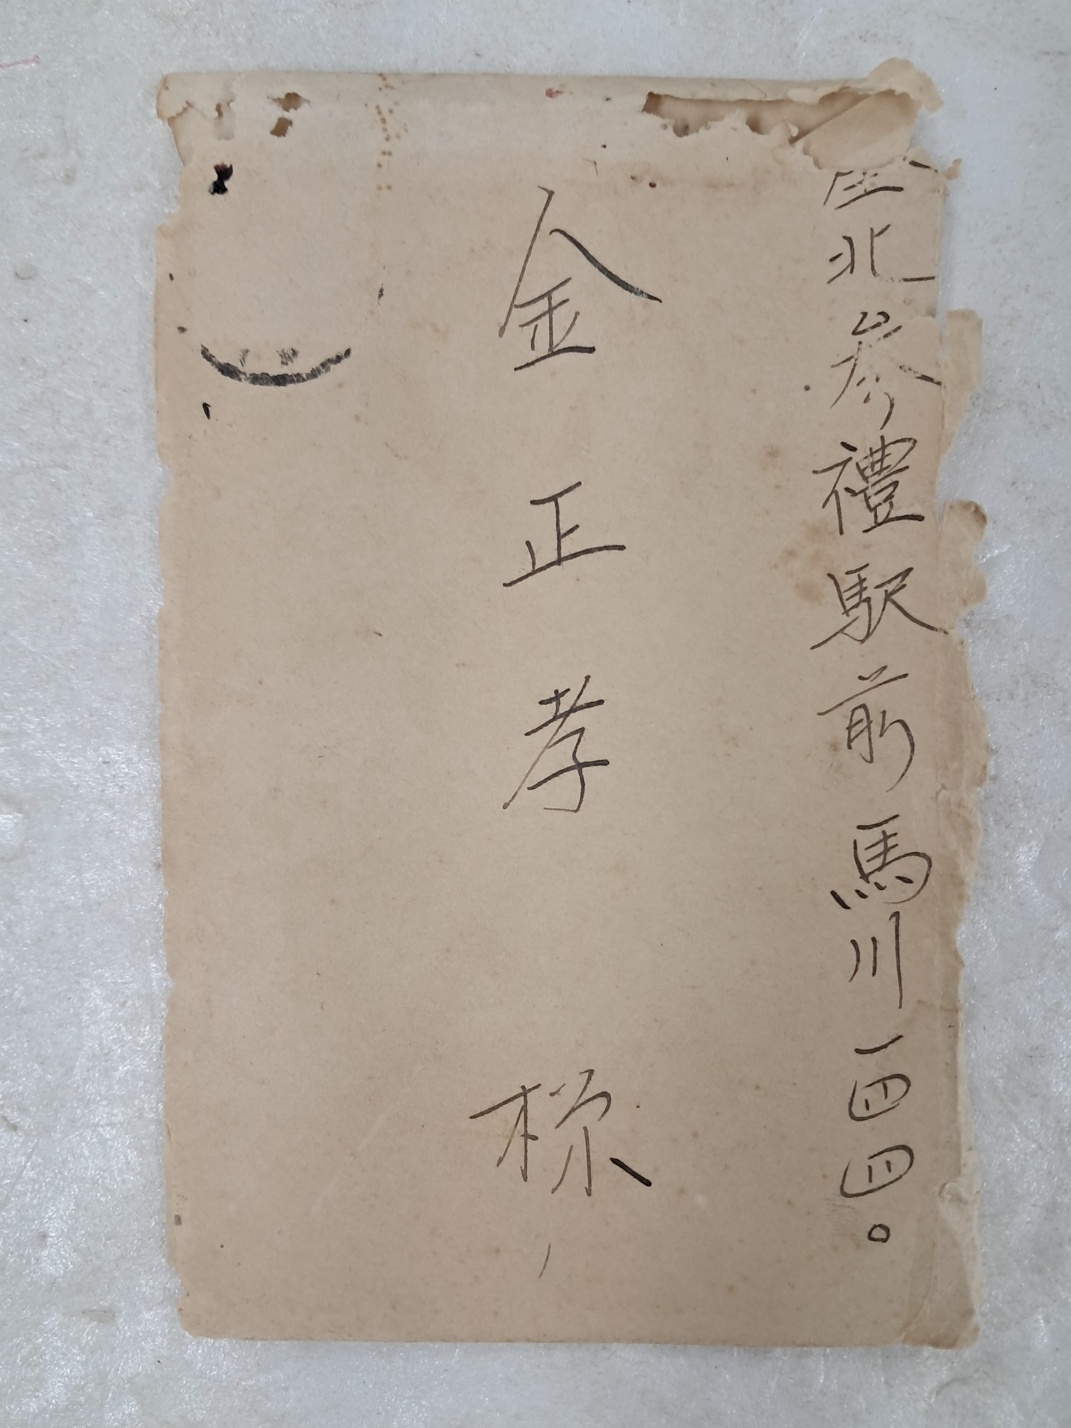 全北參禮駅前馬川一四四〇
金正孝 様